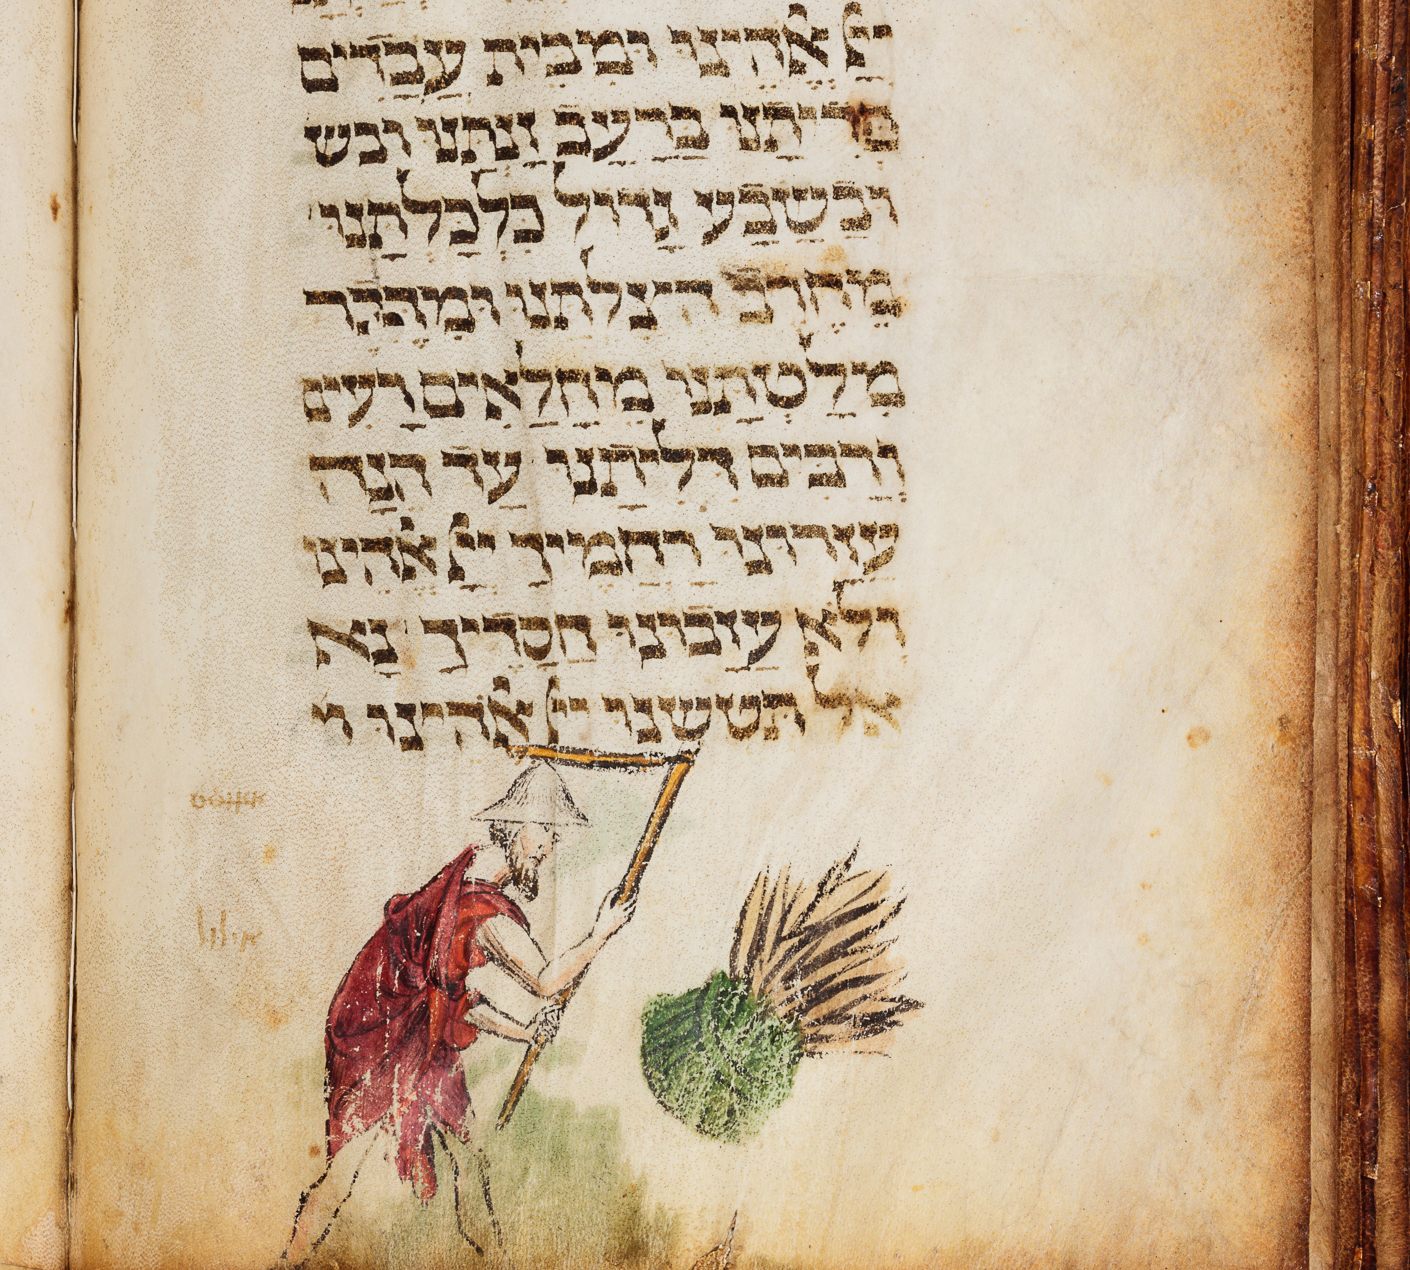 יי אלהינו ומבית עבדים
פדיתנו ברעב זנתנו ובש
ובשבע גדול כלכלתנו
מחרב הצלתנו ומדבר
מלטתנו מחלאים רעים
ורבים דליתנו עד הנה
עזרונו רחמיך יי אלהינו
ולא עזבונו חסדיך נא
אל תטשנו יי אלהינו ו